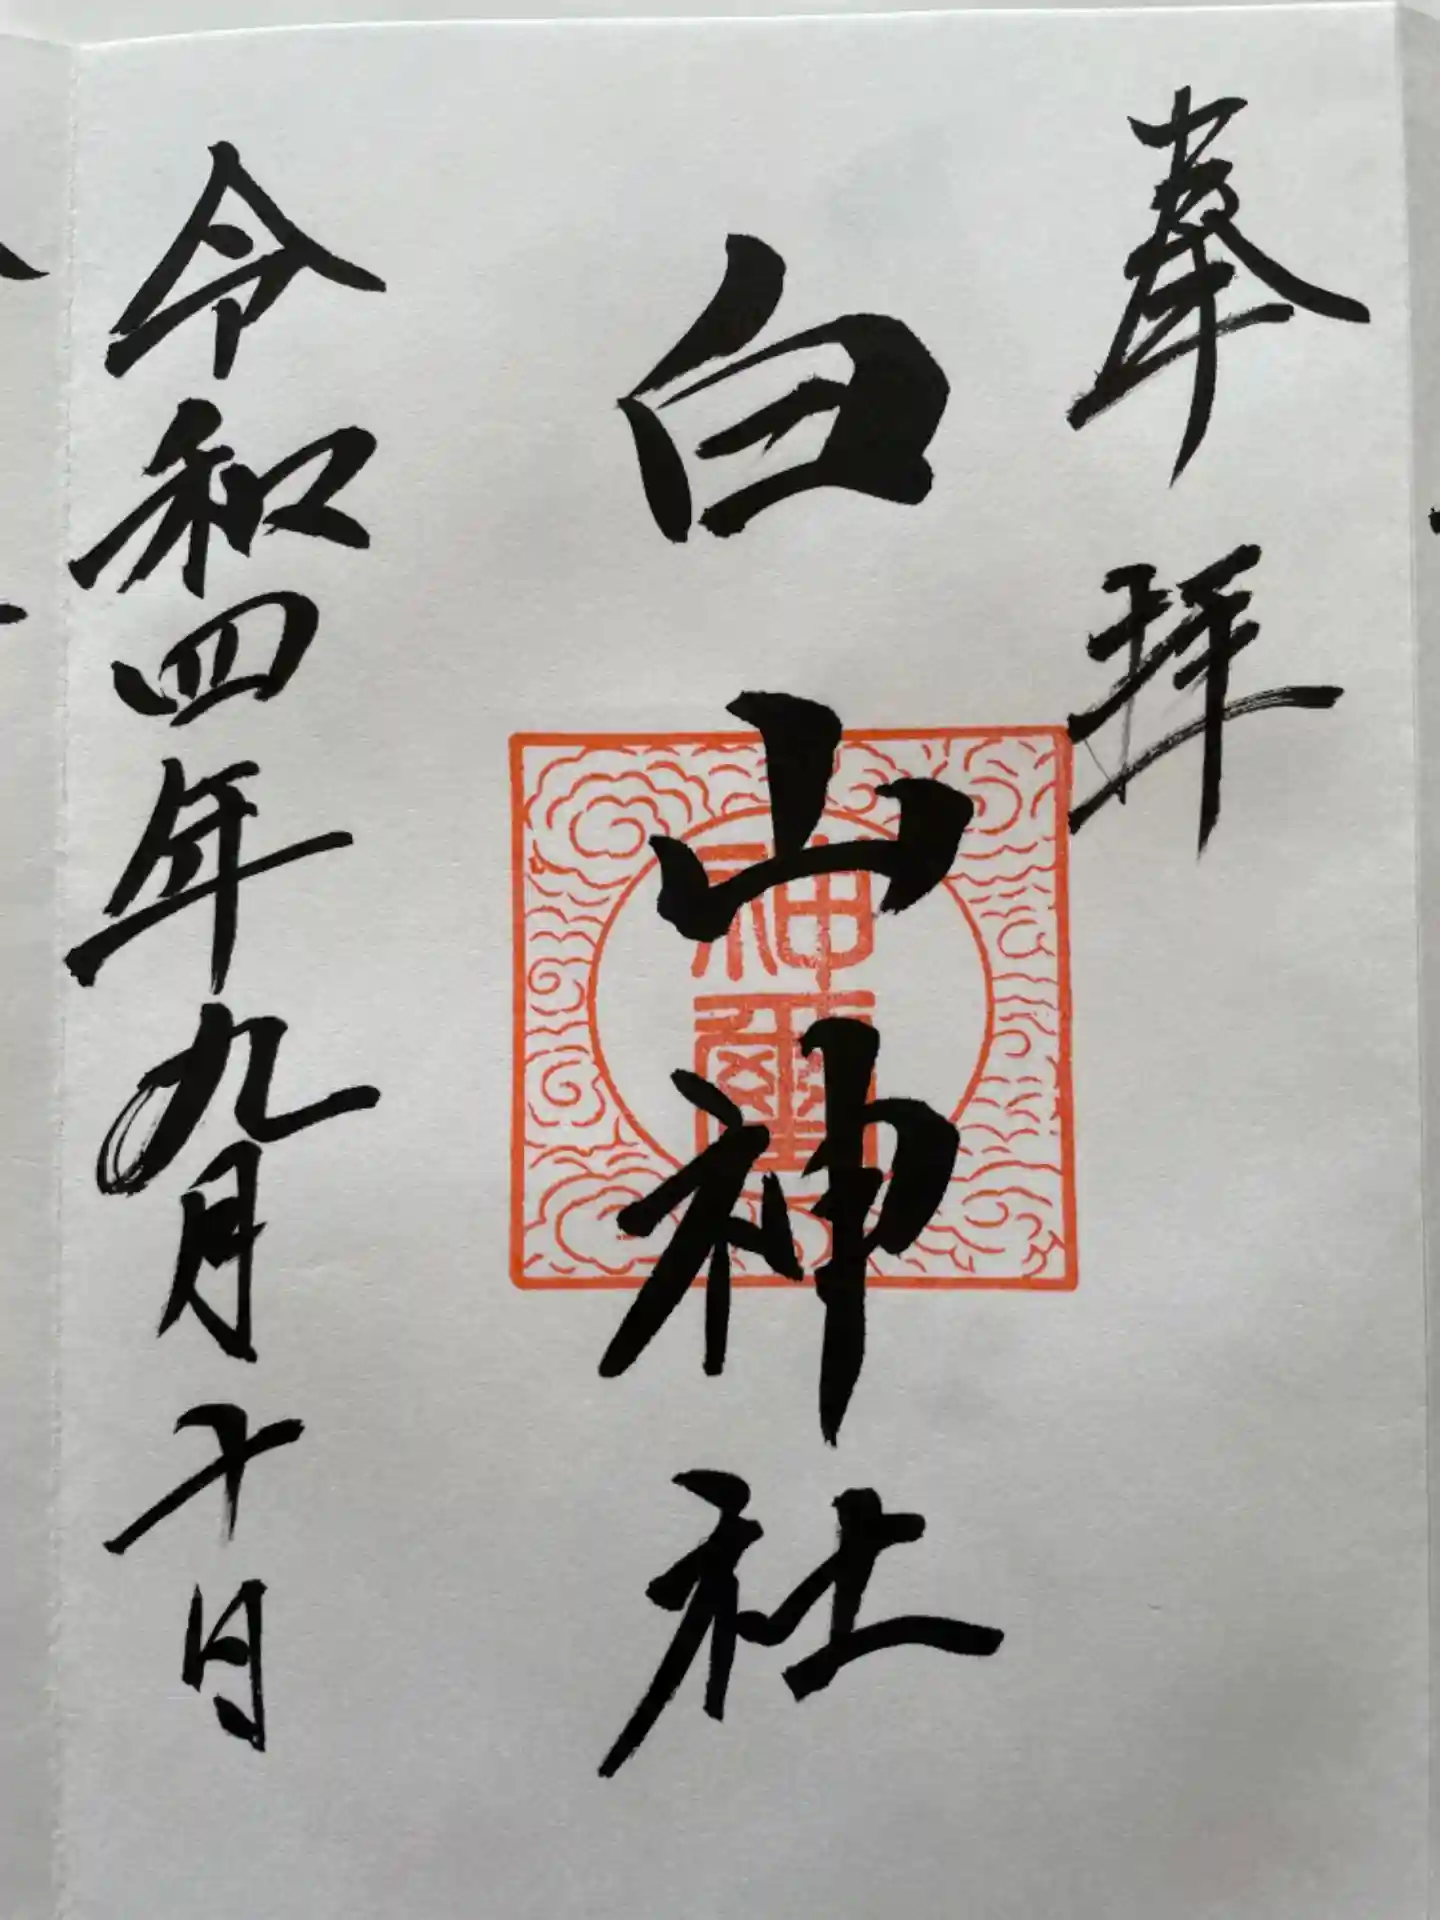 奉拝
白山神社
神璽
令和四年九月十日